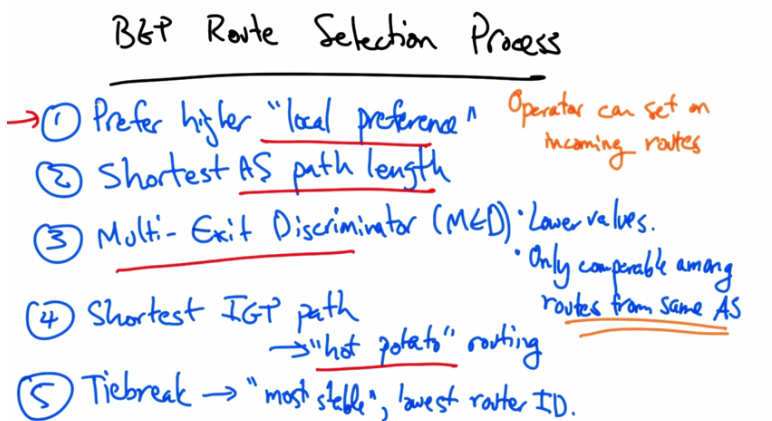 BGP Route Selection Process
① Prefer higher "local preference"
Operator can set on
incoming routes
② Shortest AS path length
③ Multi-Exit Discriminator (MED)
• Lower values.
• Only comparable among
routes from same AS
④ Shortest IGP path
→ "hot potato" routing
⑤ Tiebreak → "most stable", lowest router ID.